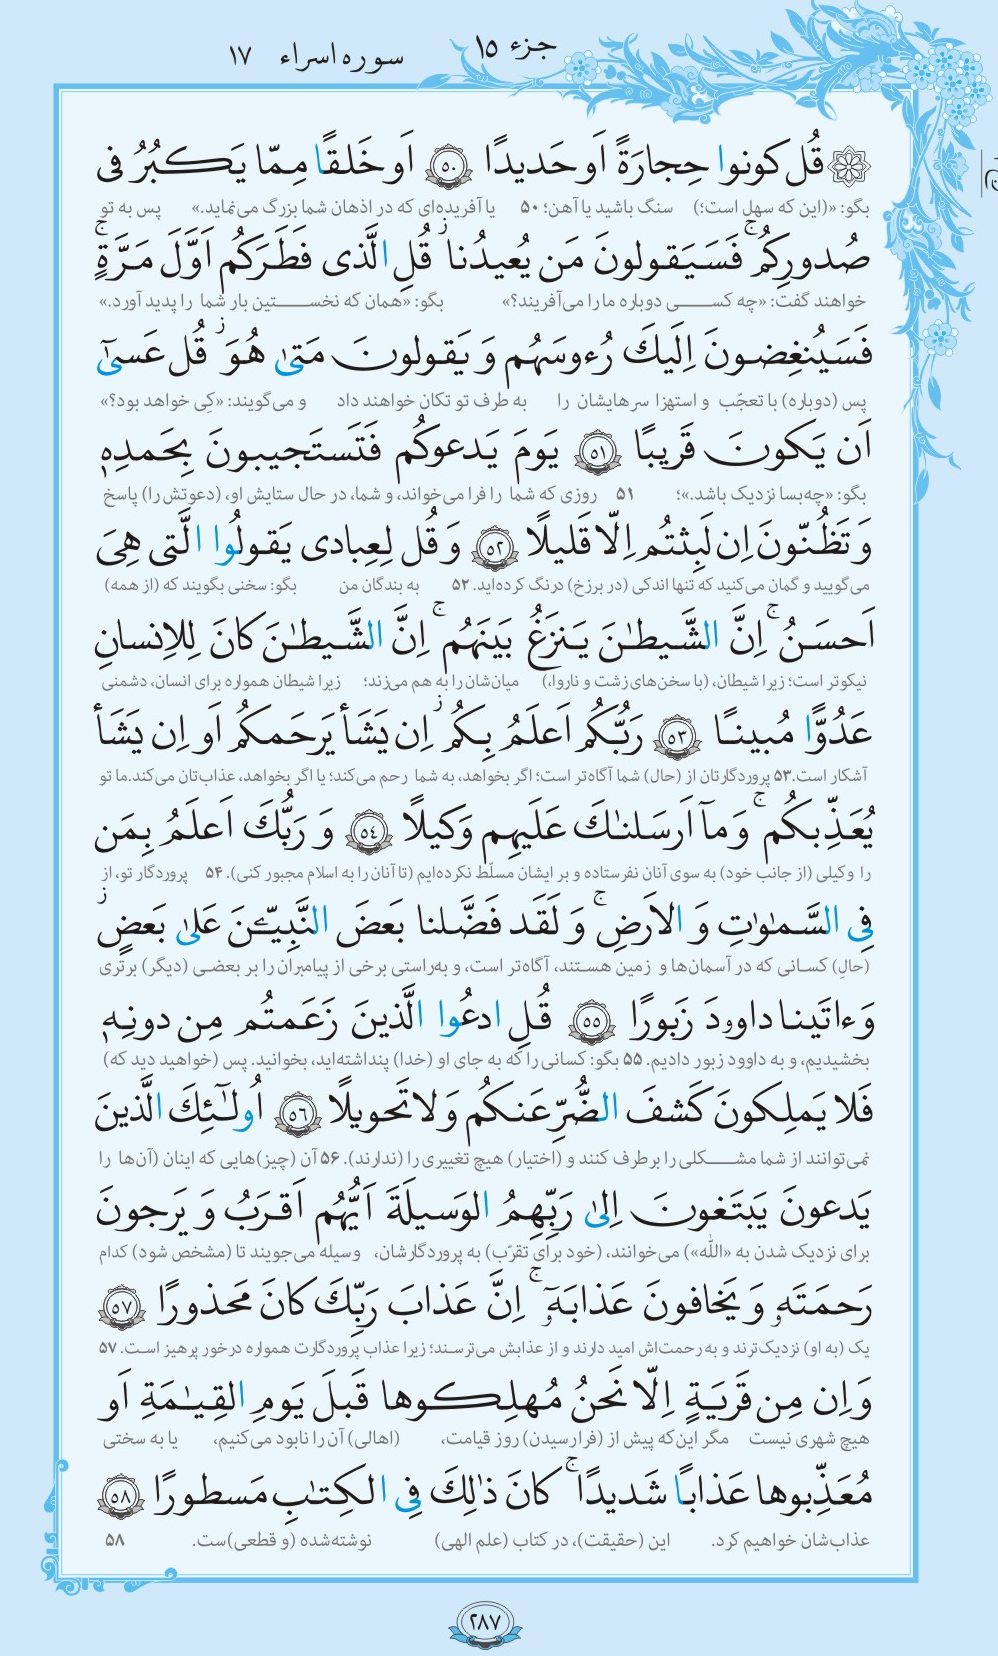 جزء ۱۵
سوره اسراء ۱۷
قُل كونوا حِجارَةً اَو حَديدًا ﴿٥٠﴾ اَو خَلقًا مِمّا يَكبُرُ فى
بگو: «(این که سهل است؛) سنگ باشید یا آهن؛ ۵۰ یا آفریده‌ای که در اذهان شما بزرگ می‌نماید.» پس به تو
صُدورِكُم ۚ فَسَيَقولونَ مَن يُعيدُنا ۖ قُلِ الَّذى فَطَرَكُم اَوَّلَ مَرَّةٍ ۚ
خواهند گفت: «چه کسی دوباره ما را می‌آفریند؟» بگو: «همان که نخستین بار شما را پدید آورد.»
فَسَيُنغِضونَ اِلَيكَ رُءوسَهُم وَ يَقولونَ مَتىٰ هُوَ ۖ قُل عَسىٰٓ
پس (دوباره) با تعجّب و استهزا سرهایشان را به طرف تو تکان خواهند داد و می‌گویند: «کِی خواهد بود؟»
اَن يَكونَ قَريبًا ﴿٥١﴾ يَومَ يَدعوكُم فَتَستَجيبونَ بِحَمدِهٖ
بگو: «چه‌بسا نزدیک باشد.»؛ ۵۱ روزی که شما را فرا می‌خواند، و شما، در حال ستایش او، (دعوتش را) پاسخ
وَ تَظُنّونَ اِن لَبِثتُم اِلّا قَليلًا ﴿٥٢﴾ وَ قُل لِعِبادى يَقولُوا الَّتى هِىَ
می‌گویید و گمان می‌کنید که تنها اندکی (در برزخ) درنگ کرده‌اید. ۵۲ به بندگان من بگو: سخنی بگویند که (از همه)
اَحسَنُ ۚ اِنَّ الشَّيطٰنَ يَنزَغُ بَينَهُم ۚ اِنَّ الشَّيطٰنَ كانَ لِلاِنسانِ
نیکوتر است؛ زیرا شیطان، (با سخن‌های زشت و ناروا،) میان‌شان را به هم می‌زند؛ زیرا شیطان همواره برای انسان، دشمنی
عَدُوًّا مُبينًا ﴿٥٣﴾ رَبُّكُم اَعلَمُ بِكُم ۖ اِن يَشَأ يَرحَمكُم اَو اِن يَشَأ
آشکار است. ۵۳ پروردگارتان از (حال) شما آگاه‌تر است؛ اگر بخواهد، به شما رحم می‌کند؛ یا اگر بخواهد، عذاب‌تان می‌کند. ما تو
يُعَذِّبكُم ۚ وَ مآ اَرسَلنٰكَ عَلَيهِم وَكيلًا ﴿٥٤﴾ وَ رَبُّكَ اَعلَمُ بِمَن
را وکیلی (از جانب خود) به سوی آنان نفرستاده و بر ایشان مسلّط نکرده‌ایم (تا آنان را به اسلام مجبور کنی). ۵۴ پروردگار تو، از
فِى السَّمٰوٰتِ وَ الاَرضِ ۚ وَ لَقَد فَضَّلنا بَعضَ النَّبِيّـۧنَ عَلىٰ بَعضٍ ۖ
(حالِ) کسانی که در آسمان‌ها و زمین هستند، آگاه‌تر است، و به‌راستی برخی از پیامبران را بر بعضی (دیگر) برتری
وَ ءاتَينا داوودَ زَبورًا ﴿٥٥﴾ قُلِ ادعُوا الَّذينَ زَعَمتُم مِن دونِهٖ
بخشیدیم، و به داوود زبور دادیم. ۵۵ بگو: کسانی را که به جای او (خدا) پنداشته‌اید، بخوانید. پس (خواهید دید که)
فَلا يَملِكونَ كَشفَ الضُّرِّ عَنكُم وَ لا تَحويلًا ﴿٥٦﴾ اُولٰٓئِكَ الَّذينَ
نمی‌توانند از شما مشکلی را برطرف کنند و (اختیار) هیچ تغییری را (ندارند). ۵۶ آن (چیز)هایی که اینان (آن‌ها را
يَدعونَ يَبتَغونَ اِلىٰ رَبِّهِمُ الوَسيلَةَ اَيُّهُم اَقرَبُ وَ يَرجونَ
برای نزدیک شدن به «الله») می‌خوانند، (خود برای تقرّب) به پروردگارشان، وسیله می‌جویند تا (مشخص شود) کدام
رَحمَتَهٗ وَ يَخافونَ عَذابَهٗٓ ۚ اِنَّ عَذابَ رَبِّكَ كانَ مَحذورًا ﴿٥٧﴾
یک (به او) نزدیک‌ترند و به رحمت‌اش امید دارند و از عذابش می‌ترسند؛ زیرا عذاب پروردگارت همواره درخور پرهیز است. ۵۷
وَ اِن مِن قَريَةٍ اِلّا نَحنُ مُهلِكوها قَبلَ يَومِ القِيٰمَةِ اَو
هیچ شهری نیست مگر این‌که پیش از (فرارسیدن) روز قیامت، (اهالی) آن را نابود می‌کنیم، یا به سختی
مُعَذِّبوها عَذابًا شَديدًا ۚ كانَ ذٰلِكَ فِى الكِتٰبِ مَسطورًا ﴿٥٨﴾
عذاب‌شان خواهیم کرد. این (حقیقت)، در کتاب (علم الهی) نوشته‌شده (و قطعی)ست. ۵۸
۲۸۷